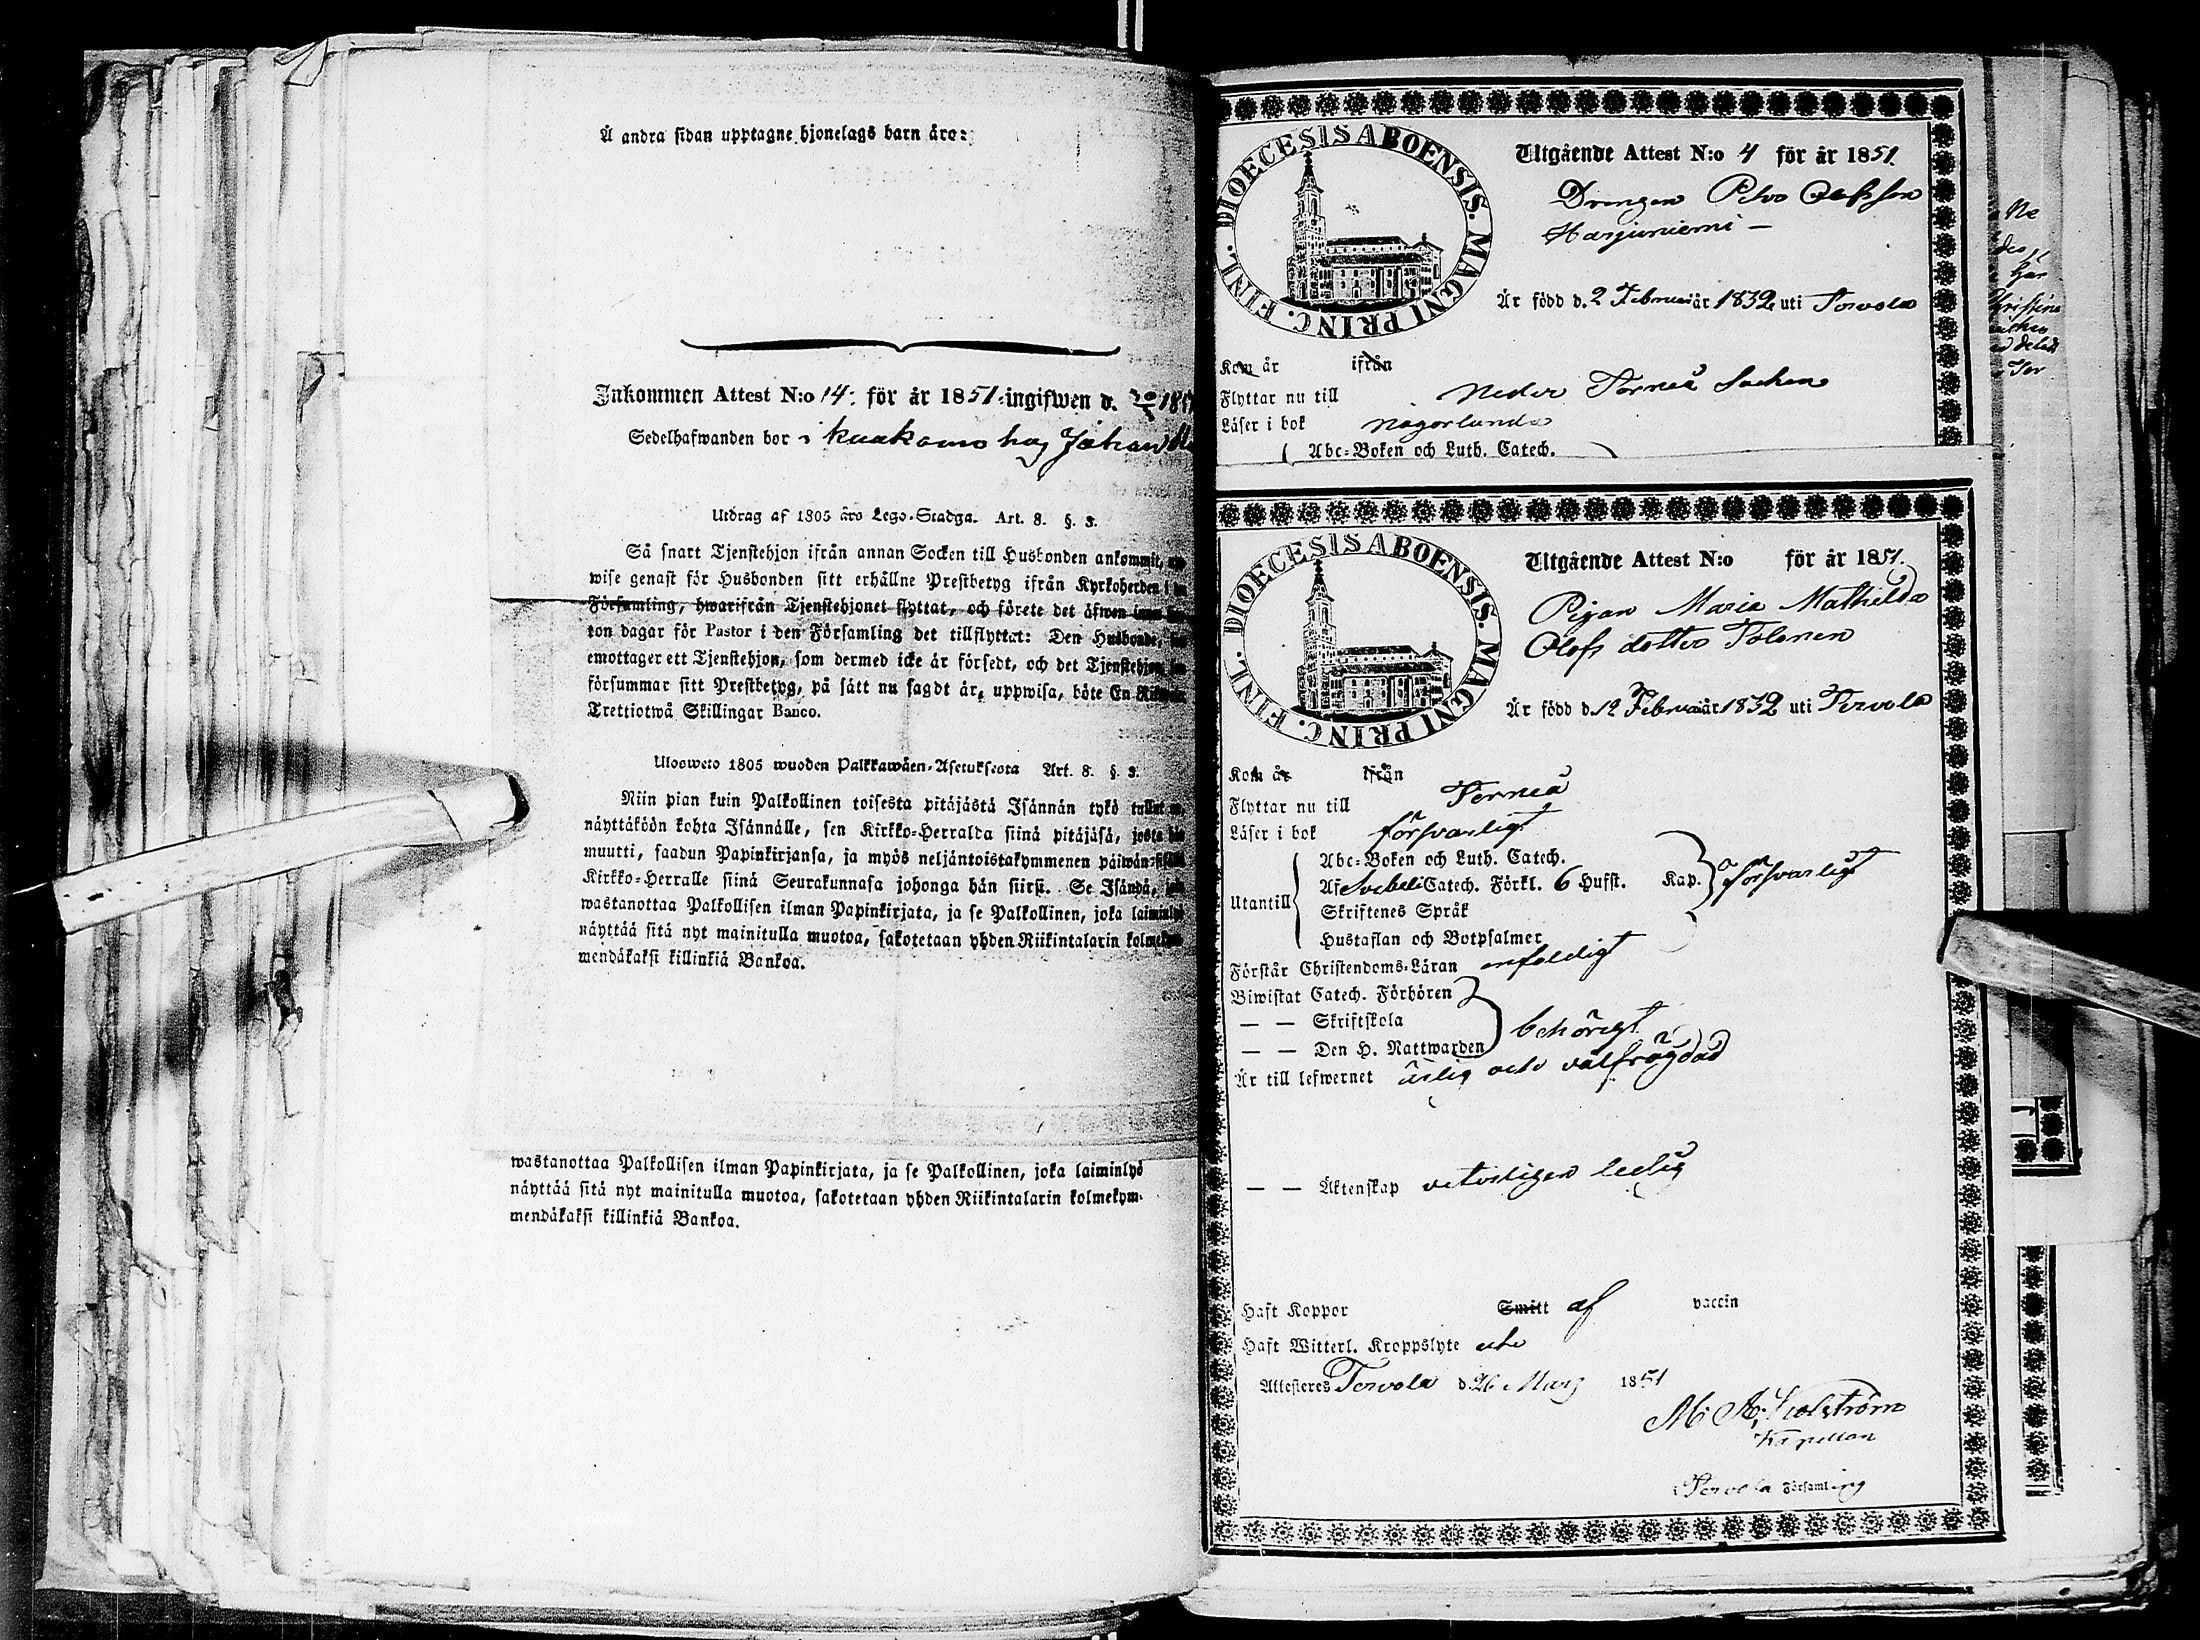 Å andra sidan upptagne hjonelags barn äro:
Inkommen Attest N:o 14. för år 1851. ingifwen d.
Sedelhafwanden bor i kuakamo hos Johan
Utdrag af 1805 års Lego-Stadga. Art. 8. §. 3.
Så snart Tjenstehjon ifrån annan Socken till Husbonden ankommit,
wise genast för Husbonden sitt erhållne Prestbetyg ifrån Kyrkoherden i
Församling, hwarifrån Tjenstehjonet flyttat, och förete det äfwen inom
ton dagar för Pastor i den Församling det tillflyttat: Den Husbonde,
emottager ett Tjenstehjon, som dermed icke är försedt, och det Tjenstehjon,
försummar sitt Prestbetyg, på sätt nu sagdt är, uppwisa, böte En Riksdaler
Trettiotwå Skillingar Banco.
Ulosweto 1805 wuoden Palkkawäen-Asetuksesta Art. 8. §. 3.
Niin pian kuin Palkollinen toisesta pitäjästä Isännän tykö tullut
näyttäköön kohta Isännälle, sen Kirkko-Herralda siinä pitäjäsä, josta hän
muutti, saadun Papinkirjansa, ja myös neljäntoistakymmenen päiwän
Kirkko-Herralle siinä Seurakunnasa johonga hän siirsi. Se Isändä,
wastanottaa Palkollisen ilman Papinkirjata, ja se Palkollinen, joka laiminlyö
näyttää sitä nyt mainitulla muotoa, sakotetaan yhden Riikintalarin kolmekym-
mendäkaksi killinkiä Bankoa.
wastanottaa Palkollisen ilman Papinkirjata, ja se Palkollinen, joka laiminlyö
näyttää sitä nyt mainitulla muotoa, sakotetaan yhden Riikintalarin kolmekym-
mendäkaksi killinkiä Bankoa.
DIOECESIS ABOENSIS. MAGNI PRINC. FINL.
Utgående Attest N:o 4 för år 1851.
Drengen Petter Olofsson
Harjuniemi –
Är född d. 2 Februari år 1832 uti Tervola
Kom år ifrån
Flyttar nu till Neder Torneå Socken
Läser i bok någorlunda
Abc-Boken och Luth. Catech.
DIOECESIS ABOENSIS. MAGNI PRINC. FINL.
Utgående Attest N:o för år 1851.
Pigan Maria Mathilda
Olofs dotter Tolonen
Är född d. 12 Februari år 1832 uti Tervola
Kom år ifrån
Flyttar nu till Torneå
Läser i bok försvarligt
Utantill
Abc-Boken och Luth. Catech.
Af Svebeli Catech. Förkl. 6 Hufst. Kap. försvarligt
Skriftenes Språk
Hustaflan och Botpsalmer
Förstår Christendoms-Läran enfaldigt
Biwistat Catech. Förhören
— — Skriftskola behörigt
— — Den H. Nattwarden
Är till lefwernet ärlig och välfrägdad
— — Äktenskap veterligen ledig
Haft Koppor Smitt af vaccin
Haft Witterl. Kroppslyte icke
Attesteres Tervola d. 26 Mars 1851
Kapellan
Tervola Församling